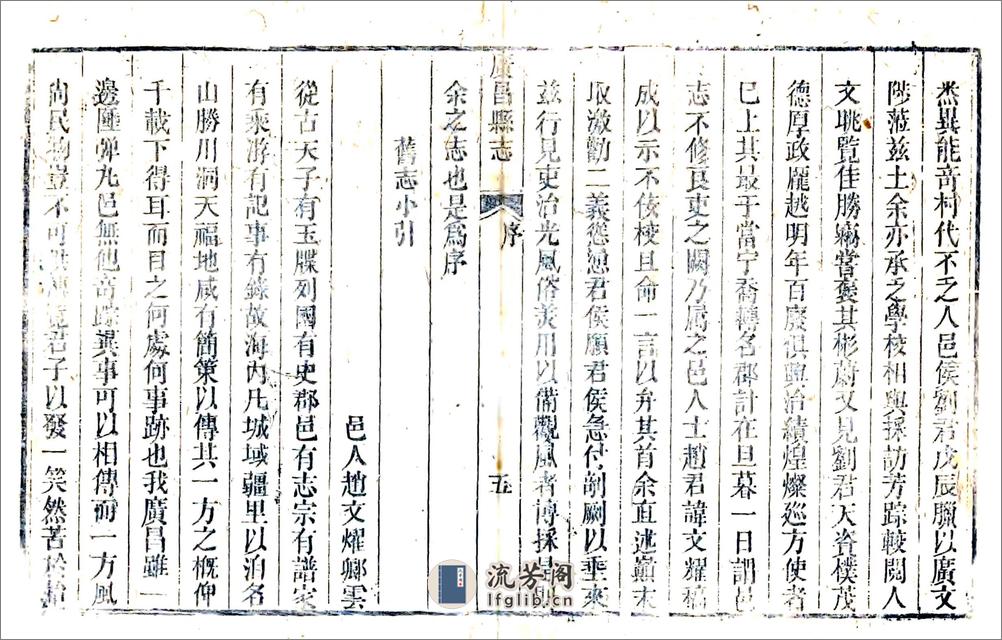 烝異能奇材代不乏人邑侯劉君戊辰臘以廣文
陟蒞茲土余亦承乏學校相與採訪芳踪較閱人
文眺覽佳勝竊嘗羨其彬蔚又見劉君天資樸茂
德厚政龎越明年百廢俱興治績煌燦廵方使者
已上其最于當宁喬轉名郡計在旦暮一日謂邑
志不修良吏之闕乃屬之邑人士趙君諱文耀稿
成以示不佞校且命一言以弁其首余直述巔末
取激勸二義慫慂君侯願君侯急付剞劂以垂來
茲行見吏治光風俗美用以備觀風者博採是則
余之志也是爲序
廣昌縣志 序 五
舊志小引
邑人趙文燿鄉雲
從古天子有玉牒列國有史郡邑有志宗有譜家
有乘游有記事有錄故海內凡城域疆里以洎名
山勝川洞天福地咸有簡策以傳其一方之槪俾
千載下得耳而目之何處何事跡也我廣昌雖一
邊陲彈丸邑無他奇踪異事可以相傳而一方風
尚民物豈不可 君子以發一笑然苦於
流芳閣
lfglib.cn